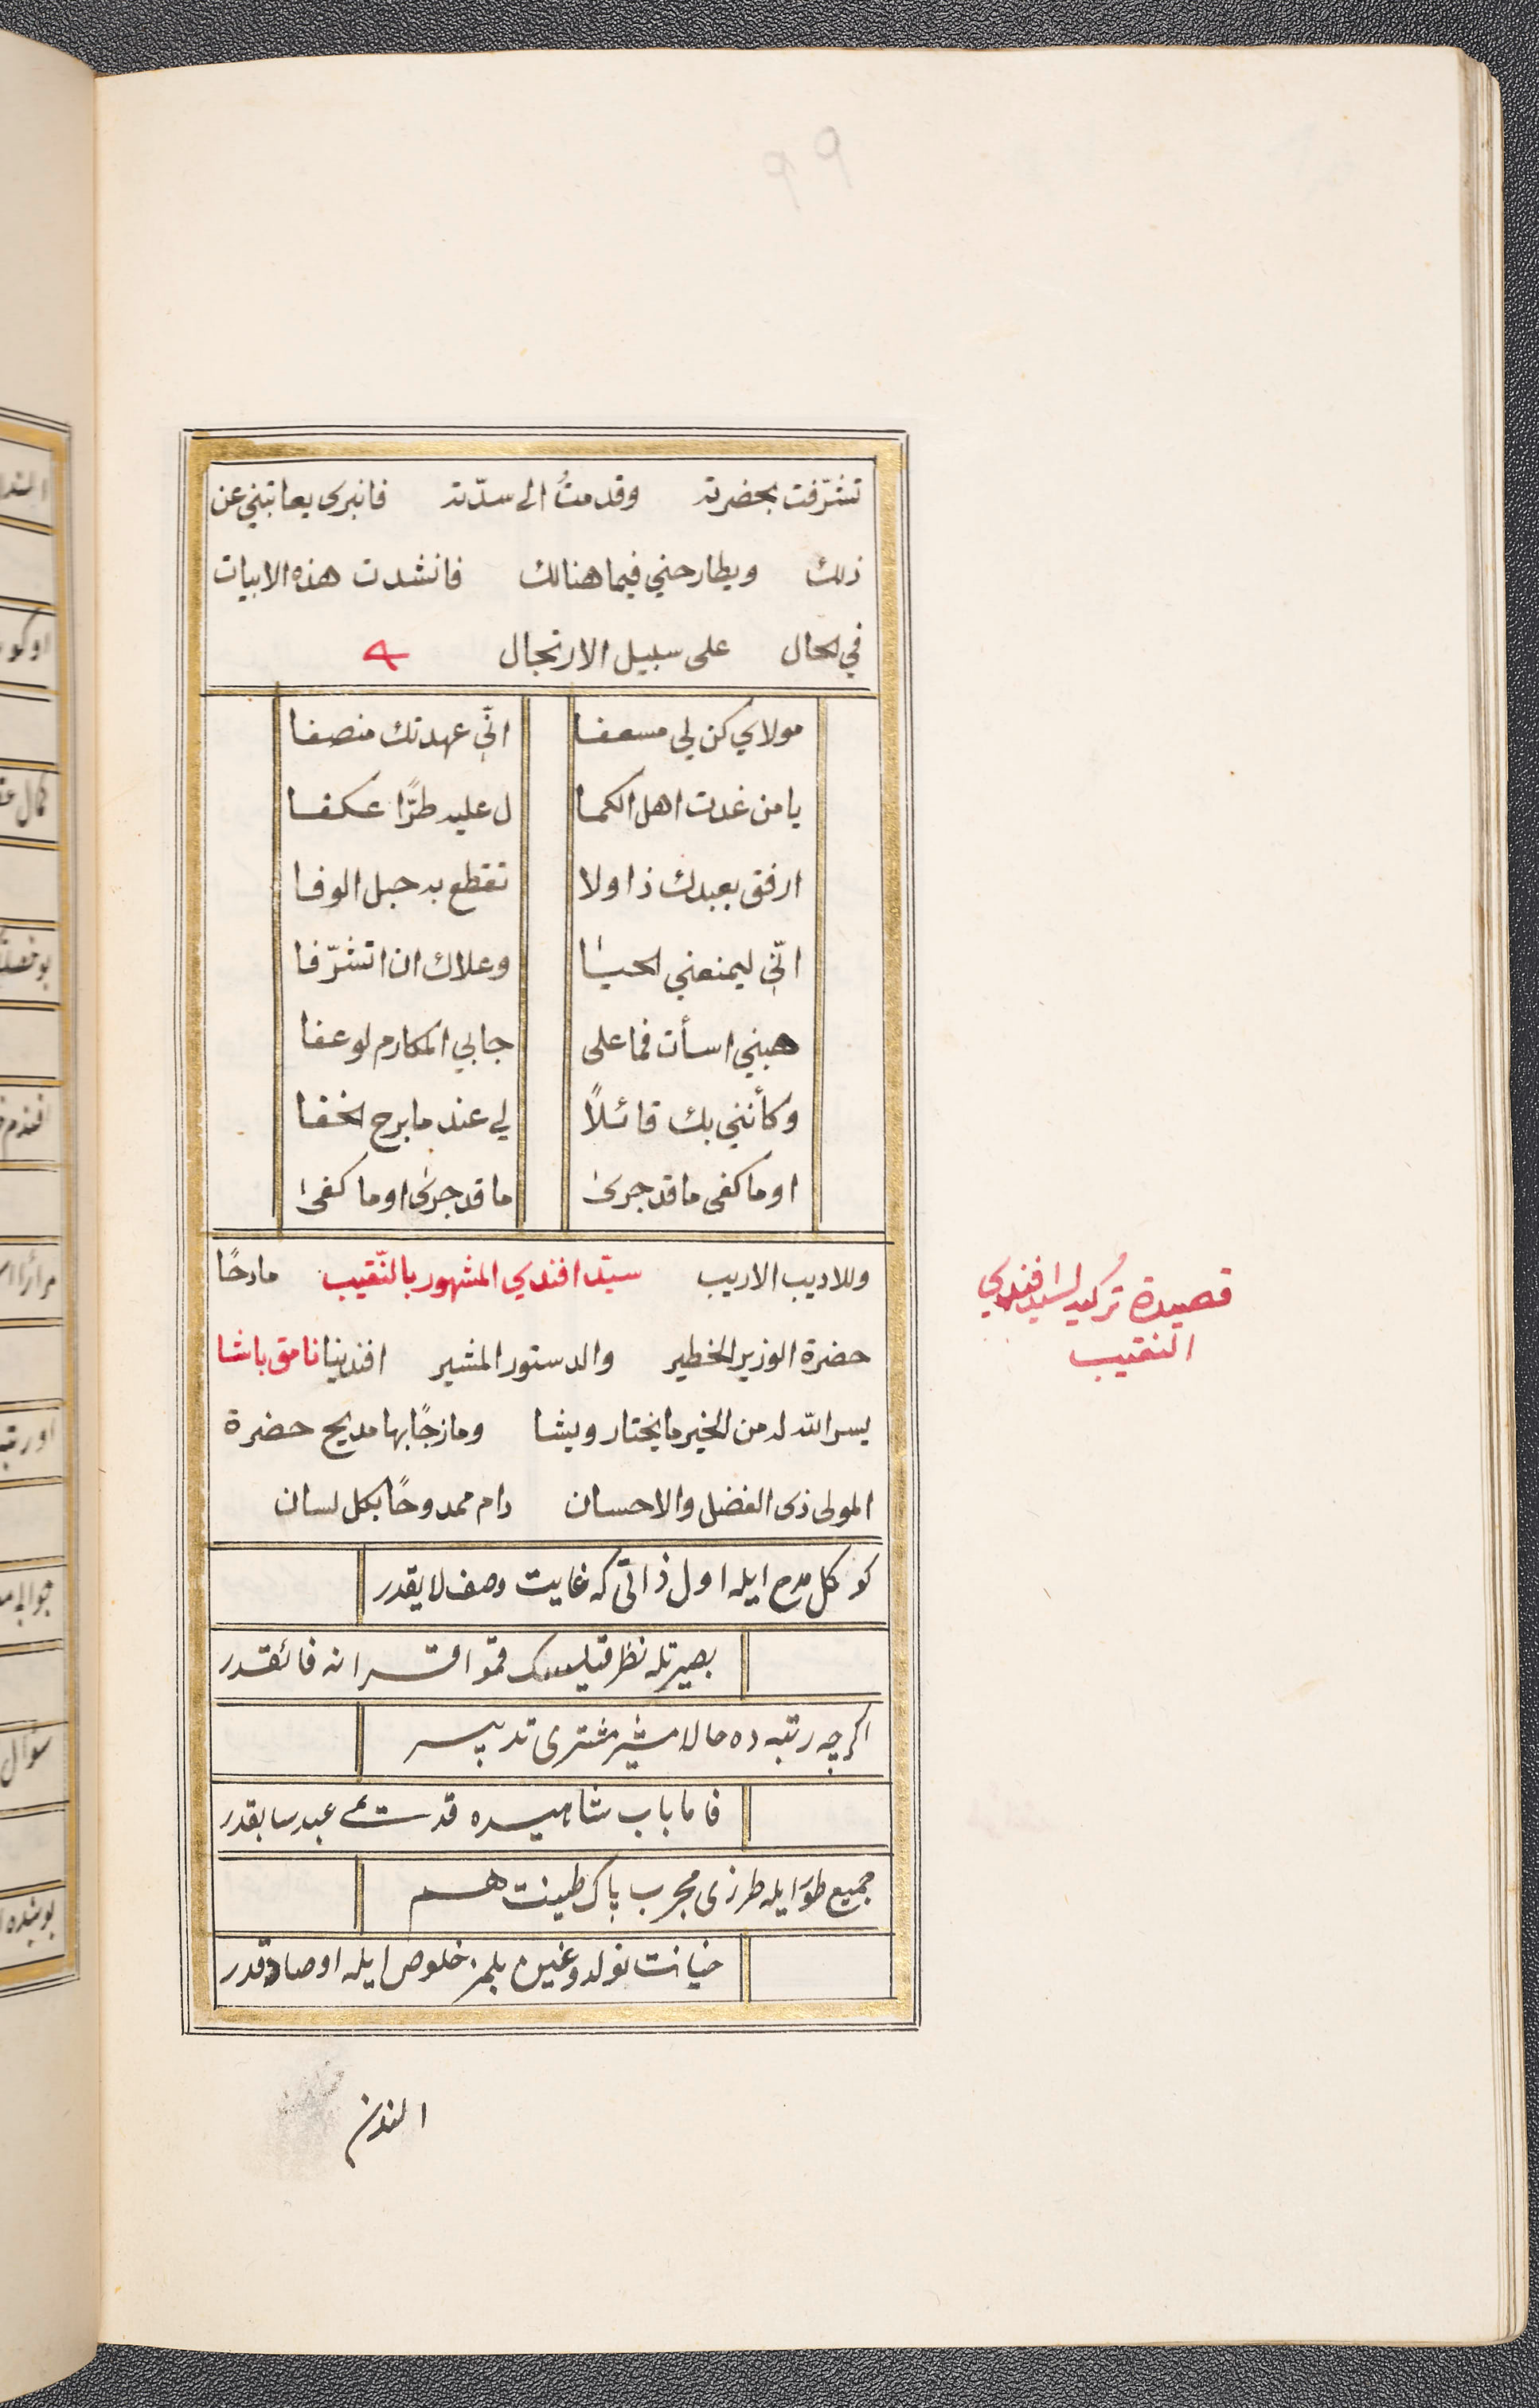 تشرّفت بحضرته وقدمتُ الى سدّته فانبرى يعاتبني عن
ذلك ويطارحني فيما هنالك فانشدت هذه الابيات
في الحال على سبيل الارتجال
مولاي كن لي مسعفا انّي عهدتك منصفا
يا من غدت اهل الكما ل عليه طرًّا عكفا
ارفق بعبدك ذا ولا تقطع به حبل الوفا
انّي ليمنعني الحيا وعلاك ان اتشرّفا
هبني اسأت فما على جابي المكارم لو عفا
وكأنني بك قائلاً لي عند ما برح الخفا
اوما كفى ما قد جرى ما قد جرى اوما كفى
وللاديب الاريب سيّد افندي المشهور بالنّقيب مادحًا
حضرة الوزير الخطير والدستور المشير افندينا نامق باشا
يسر الله له من الخير ما يختار ويشا ومازجًا بها مديح حضرة
المولى ذى الفضل والاحسان دام ممدوحًا بكل لسان
كوكل مدح ايله اول ذاتى كه غايت وصف لايقدر
بصيرتله نظر قيلسك قمو اقرانه فائقدر
اكرچه رتبه ده حالا مشير مشترى تدبير
فاما باب شاهيده قدمى عبد سابقدر
جميع طور ايله طرزى مجرب پاك طينت هم
خيانت نولدوغين بلمز خلوص ايله او صادقدر
قصيدة تُركيه لسيد افندي
النقيب